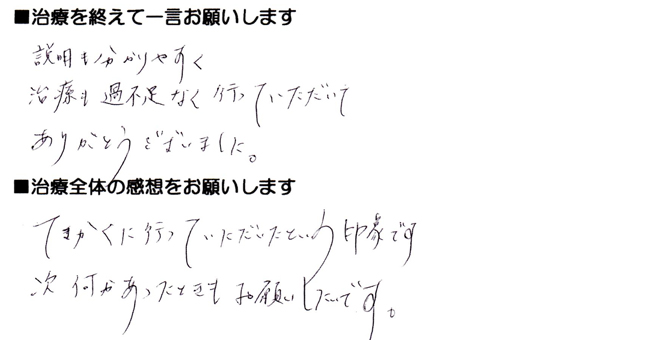 ■治療を終えて一言お願いします
説明も分かりやすく
治療も過不足なく行っていただいて
ありがとうございました。
■治療全体の感想をお願いします
てきかくに行っていただいたという印象です
次何かあったときもお願いしたいです。